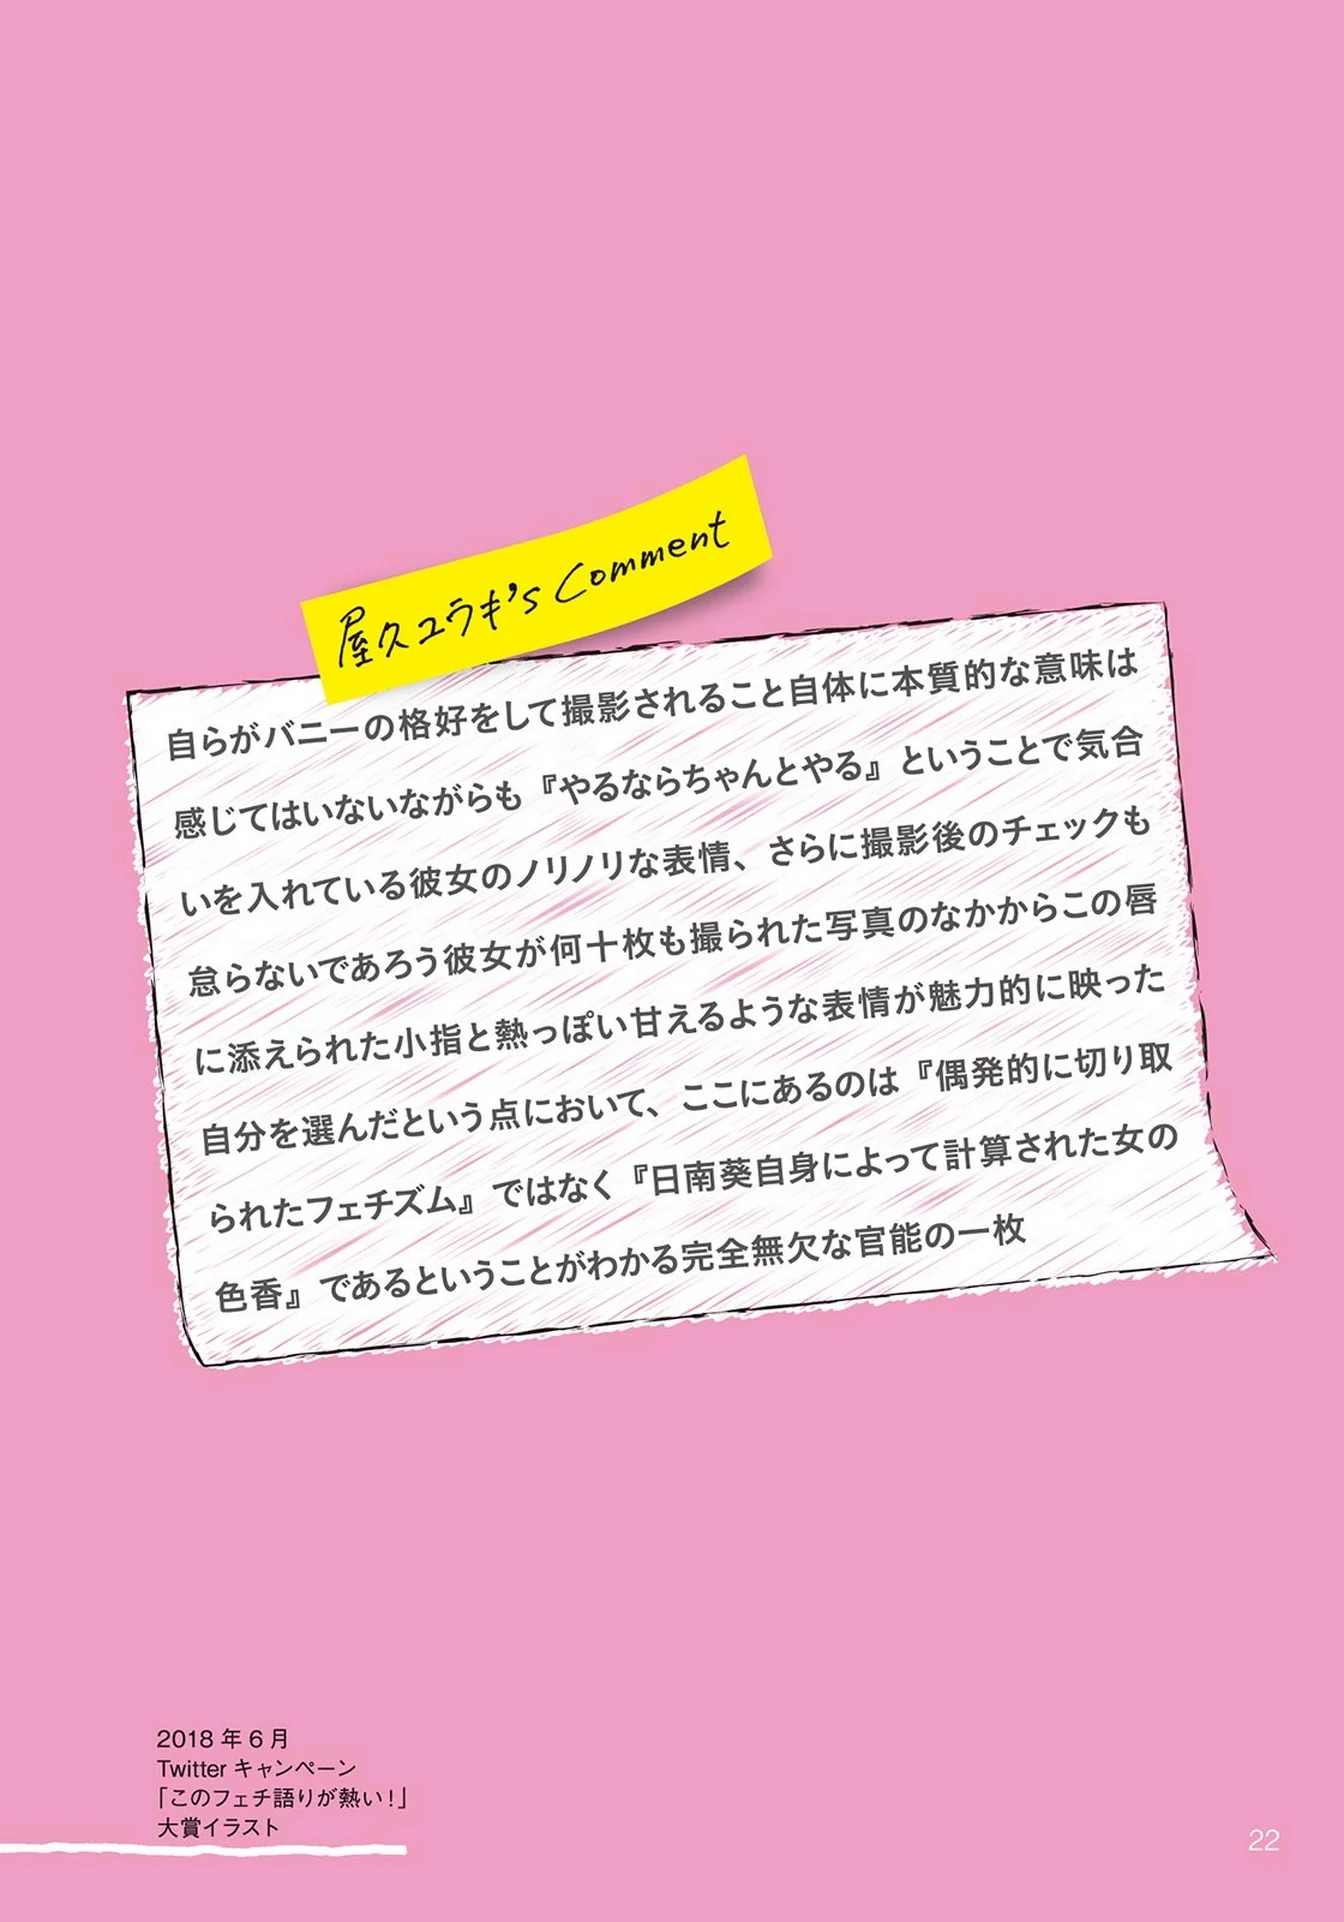 屋久ユウキ's Comment
自らがバニーの格好をして撮影されること自体に本質的な意味は
感じてはいないながらも『やるならちゃんとやる』ということで気合
いを入れている彼女のノリノリな表情、さらに撮影後のチェックも
怠らないであろう彼女が何十枚も撮られた写真のなかからこの唇
に添えられた小指と熱っぽい甘えるような表情が魅力的に映った
自分を選んだという点において、ここにあるのは『偶発的に切り取
られたフェチズム』ではなく『日南葵自身によって計算された女の
色香』であるということがわかる完全無欠な官能の一枚
2018年6月
Twitterキャンペーン
「このフェチ語りが熱い！」
大賞イラスト
22